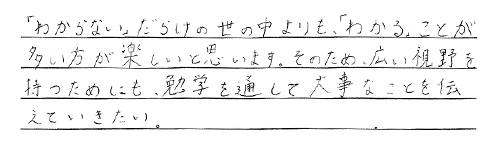 「わからない」だらけの世の中よりも、「わかる」ことが
多い方が楽しいと思います。そのため、広い視野を
持つためにも、勉学を通して大事なことを伝
えていきたい。